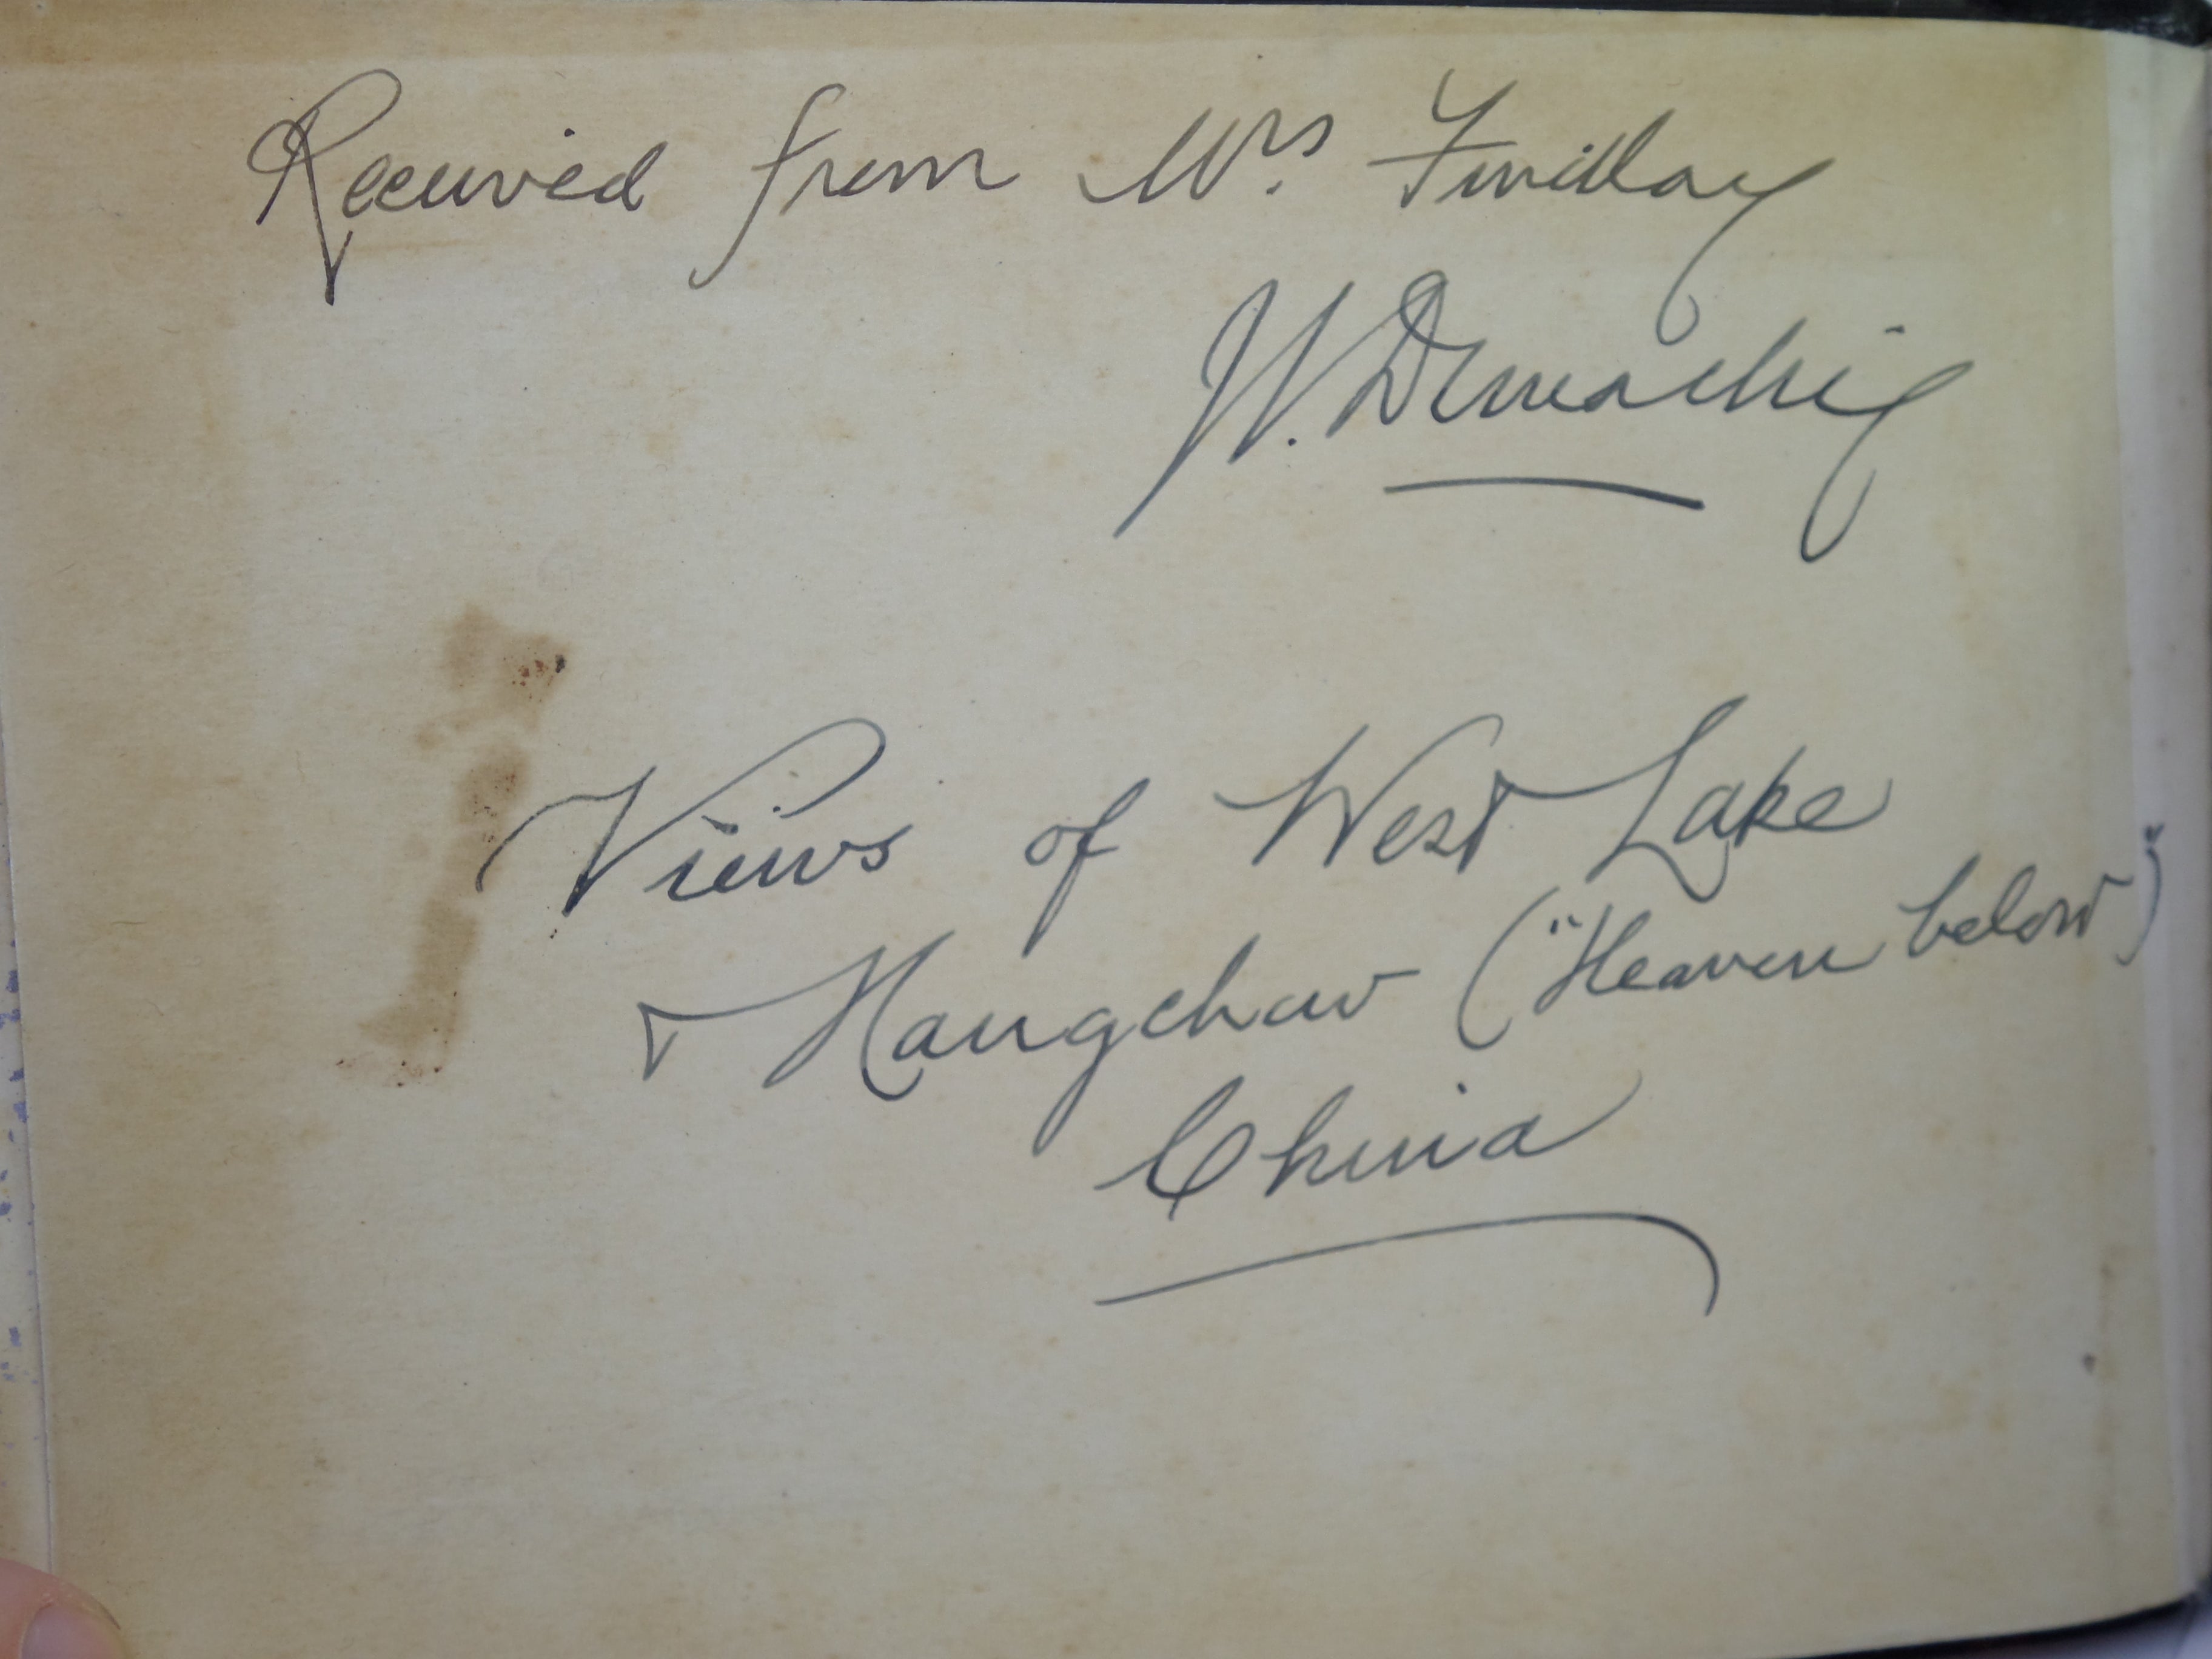 Received from Mrs Findlay
W. Demachy
Views of West Lake
Hangchaw ("Heaven below")
China